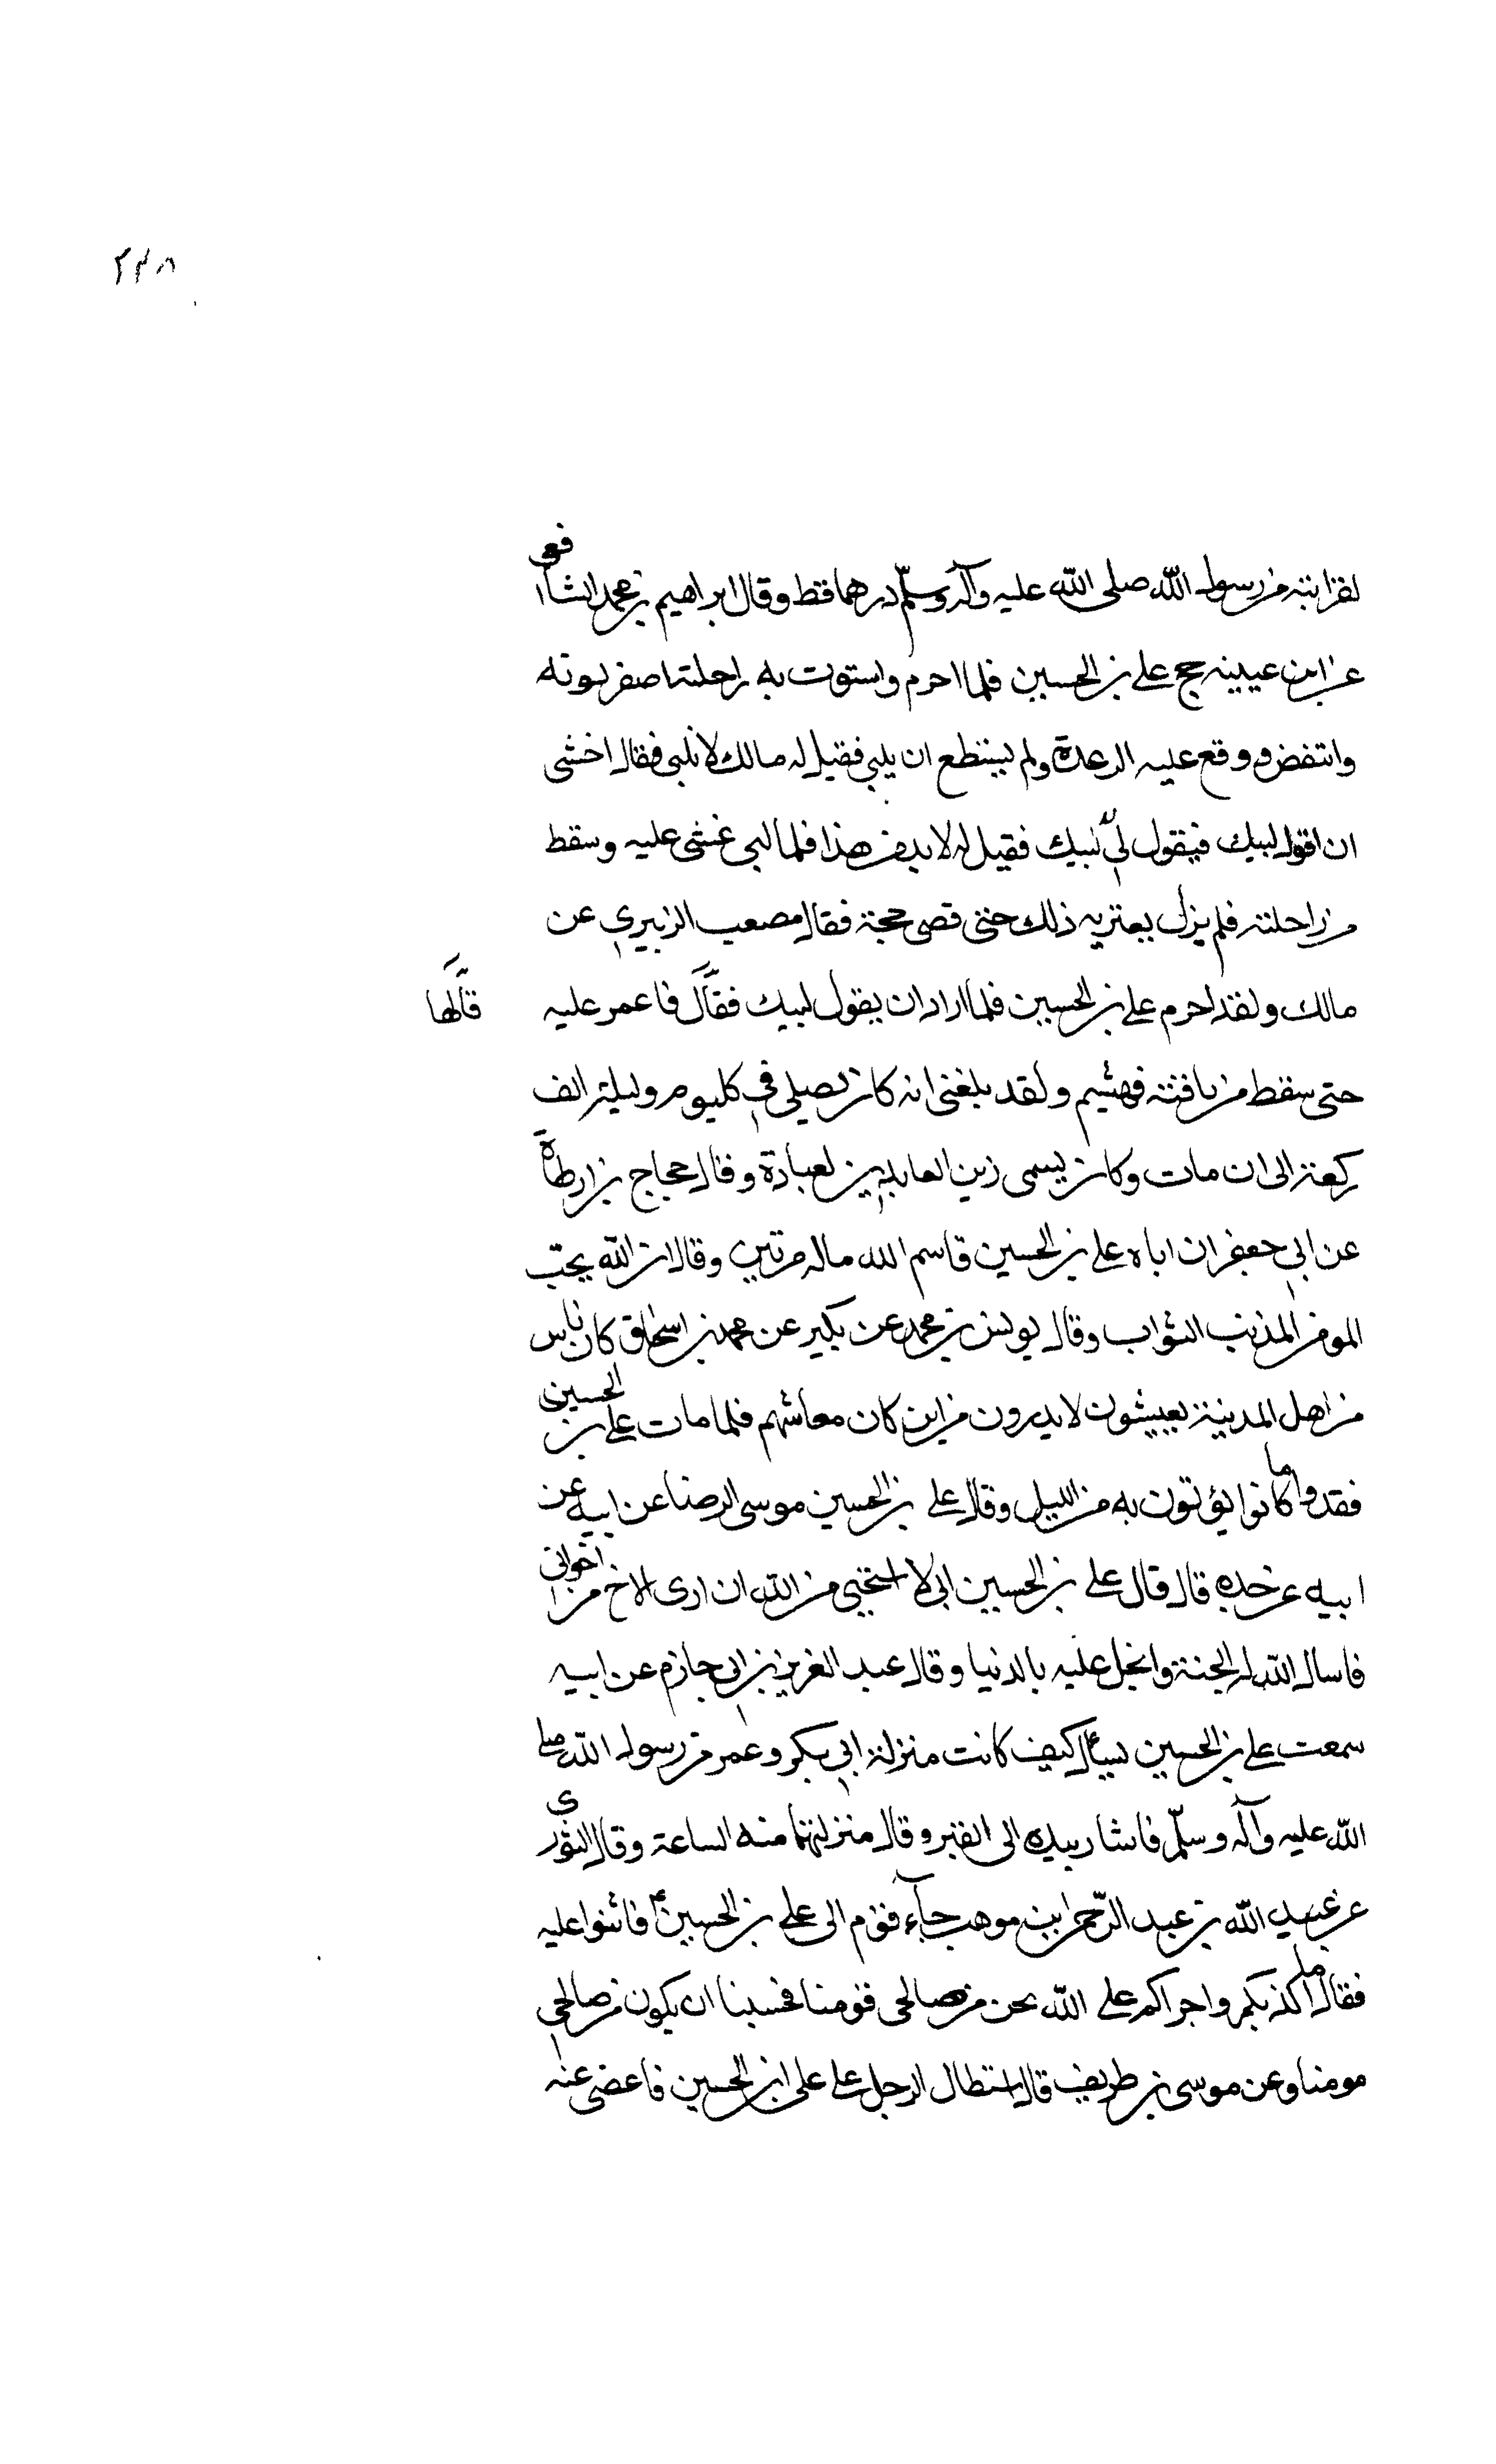 ٢٢٨
لقرابته من رسول الله صلى الله عليه وآله وسلّم درهما فقط وقال ابراهيم بن محمد الشافعى
عن ابن عيينه حج على بن الحسين فلما احرم واستوت به راحلته اصفر لونه
وانتفض ووقع عليه الرعدة ولم يستطع ان يلبى فقيل له مالك لا تلبى فقال اخشى
ان اقول لبيك فيقول لى لا لبيك فقيل له لا بد من هذا فلما لبى غشى عليه وسقط
من راحلته فلم يزل يعتريه ذلك حتى قضى حجة فقال مصعب الزبيرى عن
مالك ولقد احرم على بن الحسين فلما اراد ان يقول لبيك فقال فاغمر عليه
قالها
حتى سقط من ناقته فهشيم ولقد بلغنى انه كان يصلى فى كل يوم وليلة الف
ركعة الى ان مات وكان يسمى زين العابدين لعبادة وقال حجاج بن ارطاة
عن ابى جعفر ان اباه على بن الحسين قاسم الله ماله مرتين وقال ان الله يحبّ
المومن المذنب التواب وقال يونس بن محمد عن بكير عن محمد بن اسحاق كان ناس
من اهل المدينة يعيشون لا يدرون من اين كان معاشهم فلما مات على بن الحسين
فقدوا ما كانوا يؤتون به من الليل وقال على بن الحسين موسى الرضا عن ابيه عن
ابيه عن جده قال قال على بن الحسين انى لا استحيى من الله ان ارى الاخ من اخوانى
فاسال الله له الجنة وابخل عليه بالدنيا وقال عبد العزيز بن ابى حازم عن ابيه
سمعت على بن الحسين يسأل كيف كانت منزلة ابى بكر وعمر من رسول الله صلى
الله عليه وآله وسلّم فاشار بيده الى القبر وقال منزلتهما منه الساعة وقال الثورى
عن عبيد الله بن عبد الرّحمن ابن موهب جآء قوم الى على بن الحسين ع فاثنوا عليه
فقال ما اكذبكم واجراكم على الله نحن من صالحى قومنا فحسبنا ان يكون من صالحى
مومنا وعن موسى بن طريف قال استطال الرجل على على ابن الحسين فاغضى عنه